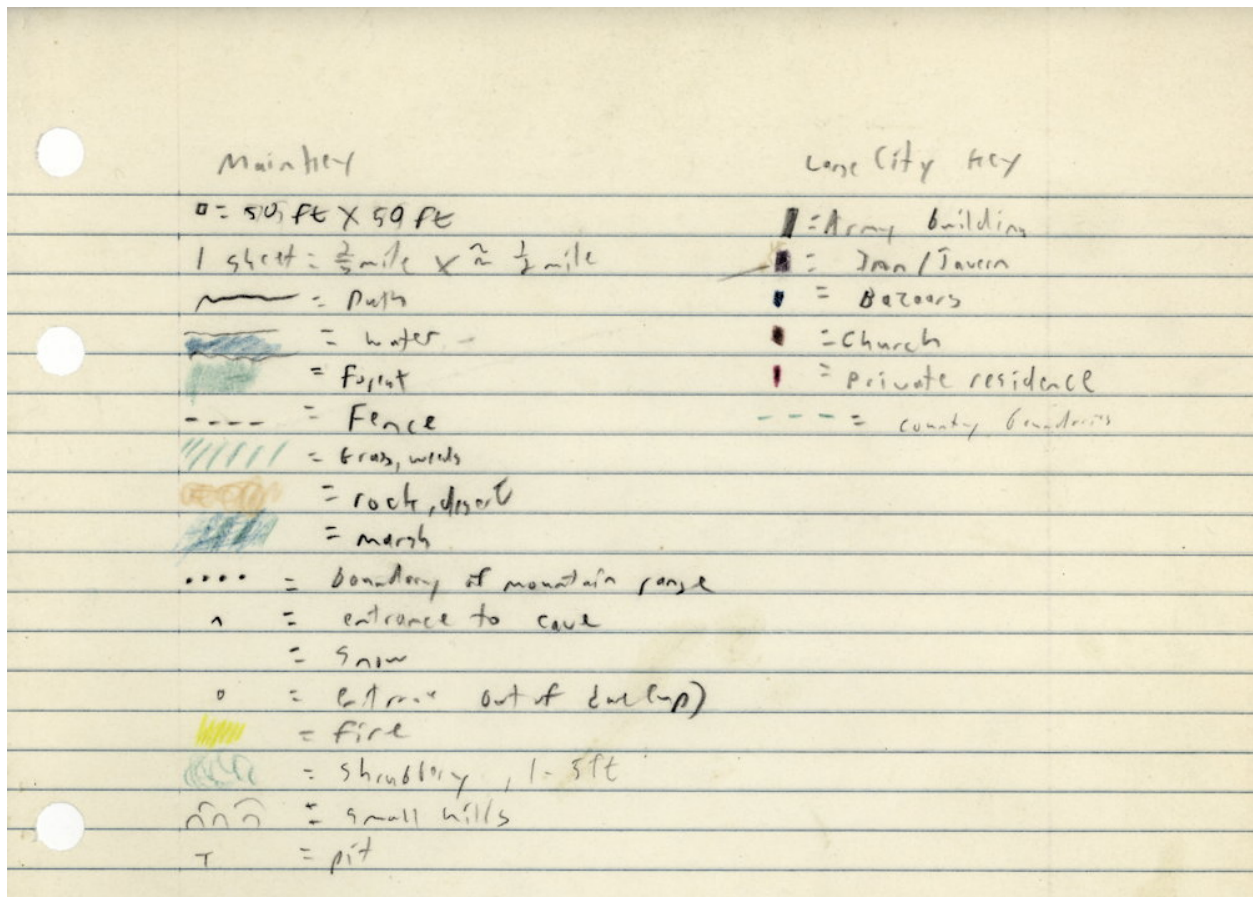 Main Key
= 50 ft X 50 ft
1 sheet = mile X ≈ 1/2 mile
= Path
= water
= Forest
= Fence
= Grass, weeds
= rock, desert
= marsh
= boundary of mountain range
= entrance to cave
= snow
= out of
= fire
= shrubbery, 1-5ft
= small hills
T = pit
Large City Key
= Army building
= Inn/Tavern
= Bazaars
= Church
= private residence
= country boundaries